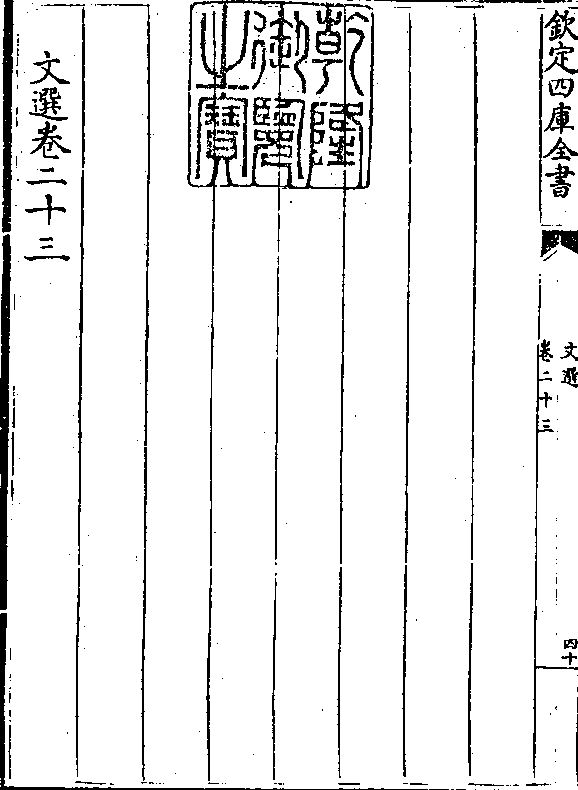 欽定四庫全書
文選
卷二十三
四十
乾隆御覽之寶
文選卷二十三